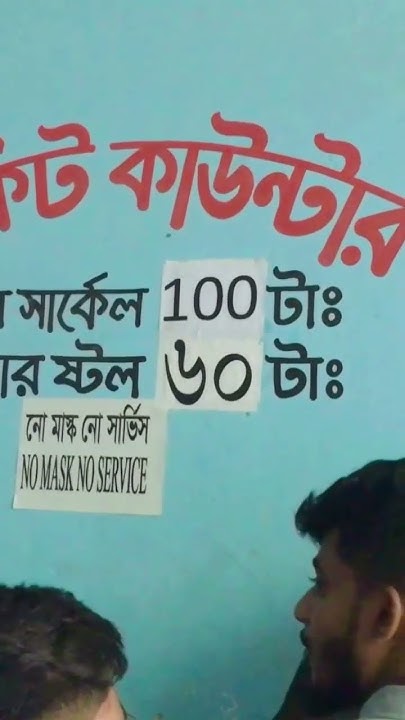 কাউন্টার
সার্কেল 100 টাঃ
ষ্টল ৬০ টাঃ
নো মাস্ক নো সার্ভিস
NO MASK NO SERVICE